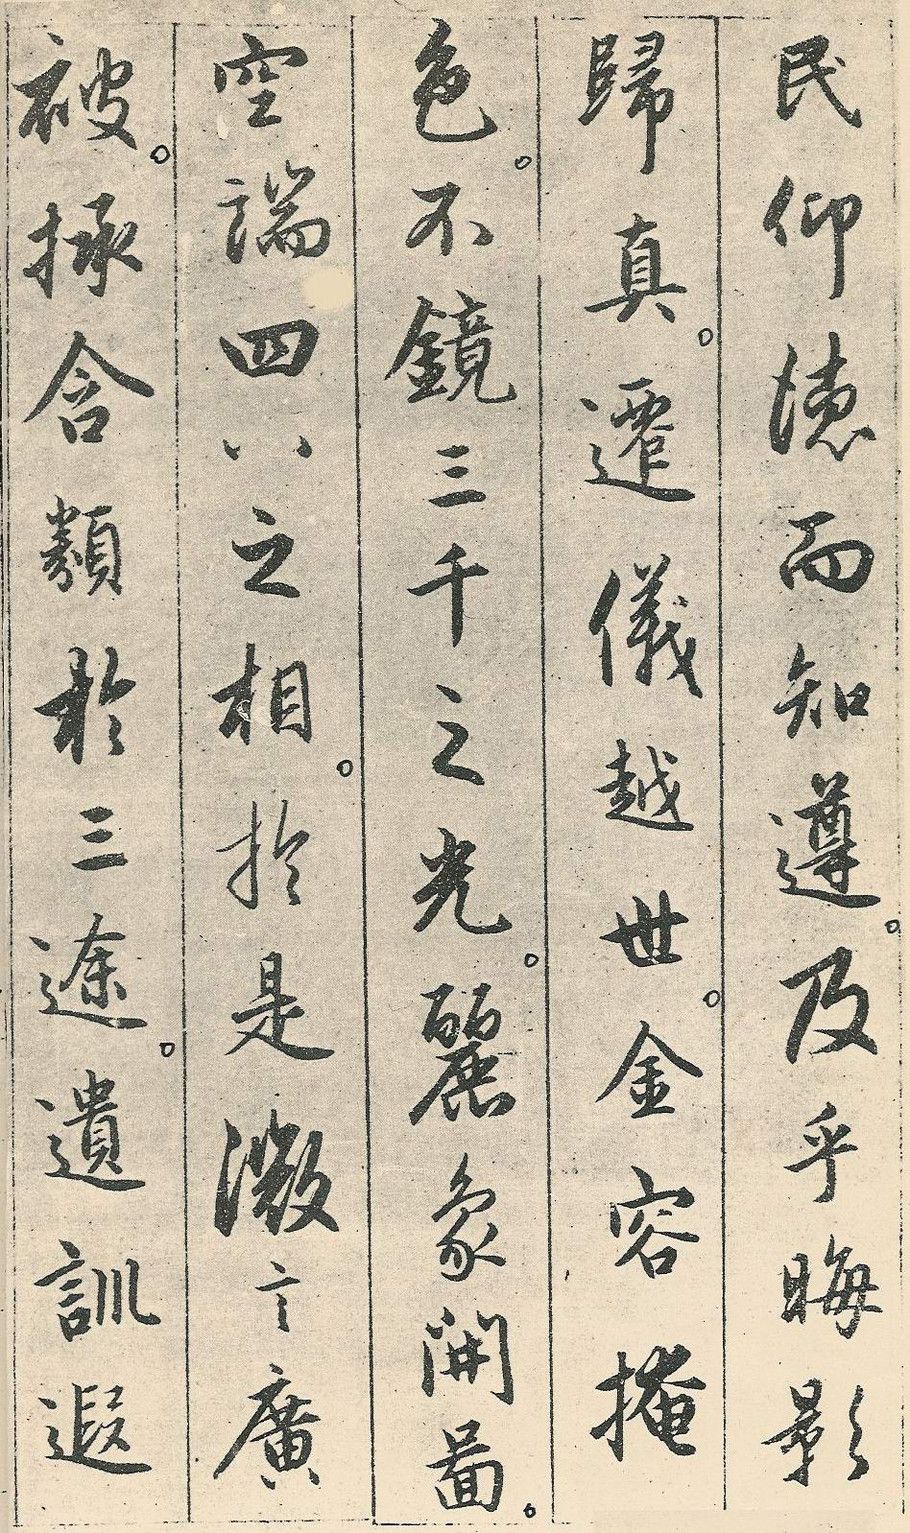 民仰德而知遵。及乎晦影
歸真。遷儀越世。金容掩
色。不鏡三千之光。麗象開圖。
空端四八之相。於是微言廣
被。拯含類於三途。遺訓遐